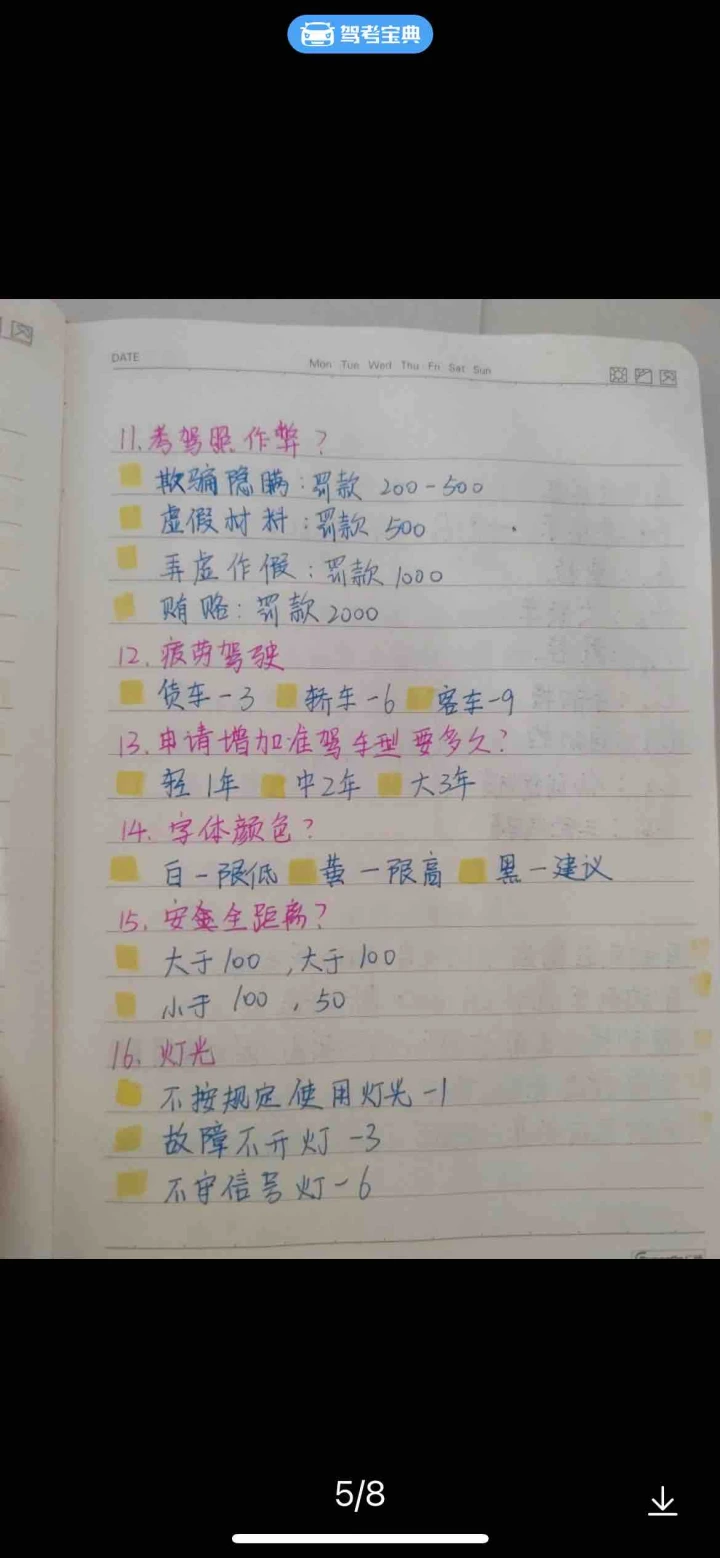 驾考宝典
DATE
Mon Tue Wed Thu Fri Sat Sun
11.考驾照作弊？
欺骗隐瞒：罚款 200-500
虚假材料：罚款 500
弄虚作假：罚款 1000
贿赂：罚款 2000
12.疲劳驾驶
货车-3 轿车-6 客车-9
13.申请增加准驾车型要多久？
轻1年 中2年 大3年
14.字体颜色？
白-限低 黄-限高 黑-建议
15.安全距离？
大于100，大于100
小于100，50
16.灯光
不按规定使用灯光-1
故障不开灯-3
不守信号灯-6
5/8